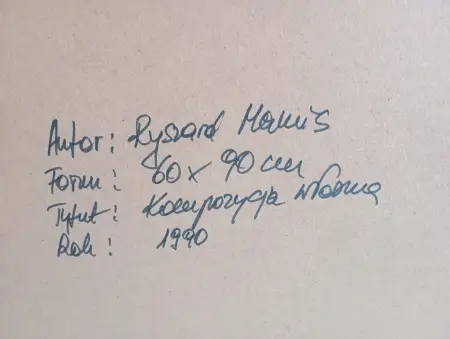 Autor: Ryszard
Form: 60 x 90 cm
Tytuł: Kompozycja własna
Rok: 1990